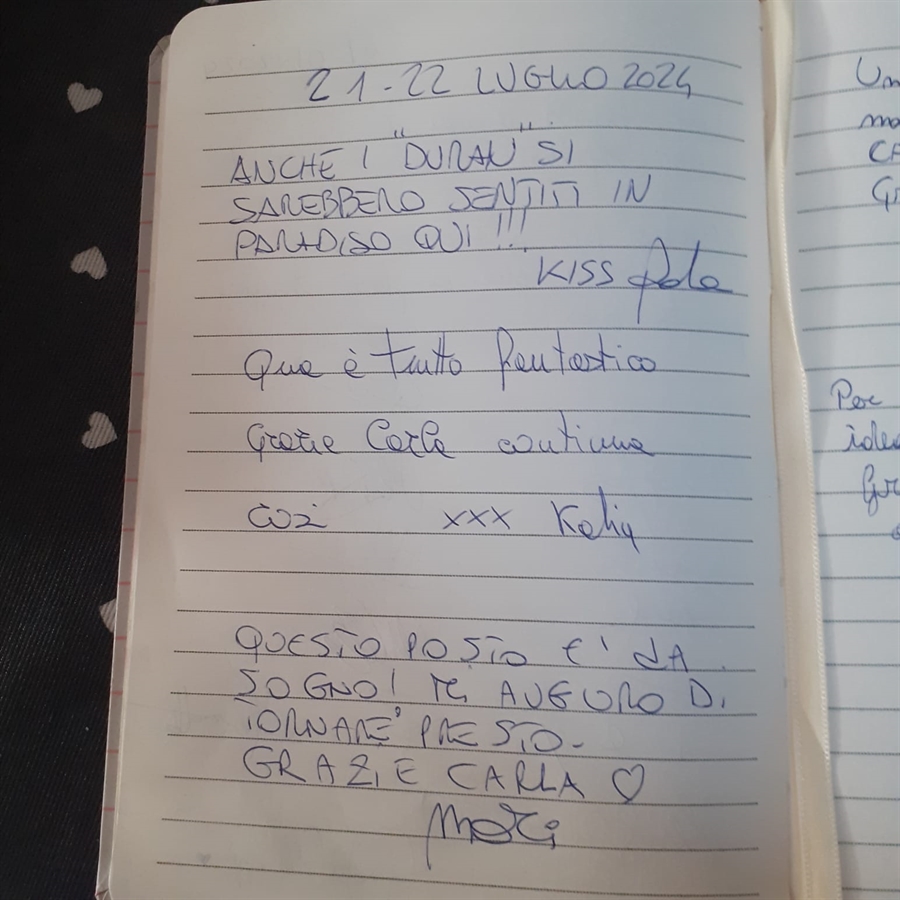 21-22 LUGLIO 2024
ANCHE I "DURAN" SI
SAREBBERO SENTITI IN
PARADISO QUI !!!
KISS
Qua è tutto fantastico
Grazie Carla continua
così xxx Kelia
QUESTO POSTO E' DA
SOGNO! MI AUGURO DI
TORNARE PRESTO-
GRAZIE CARLA ♡
Un
ma
CA
Gr
Per
idea
Gr